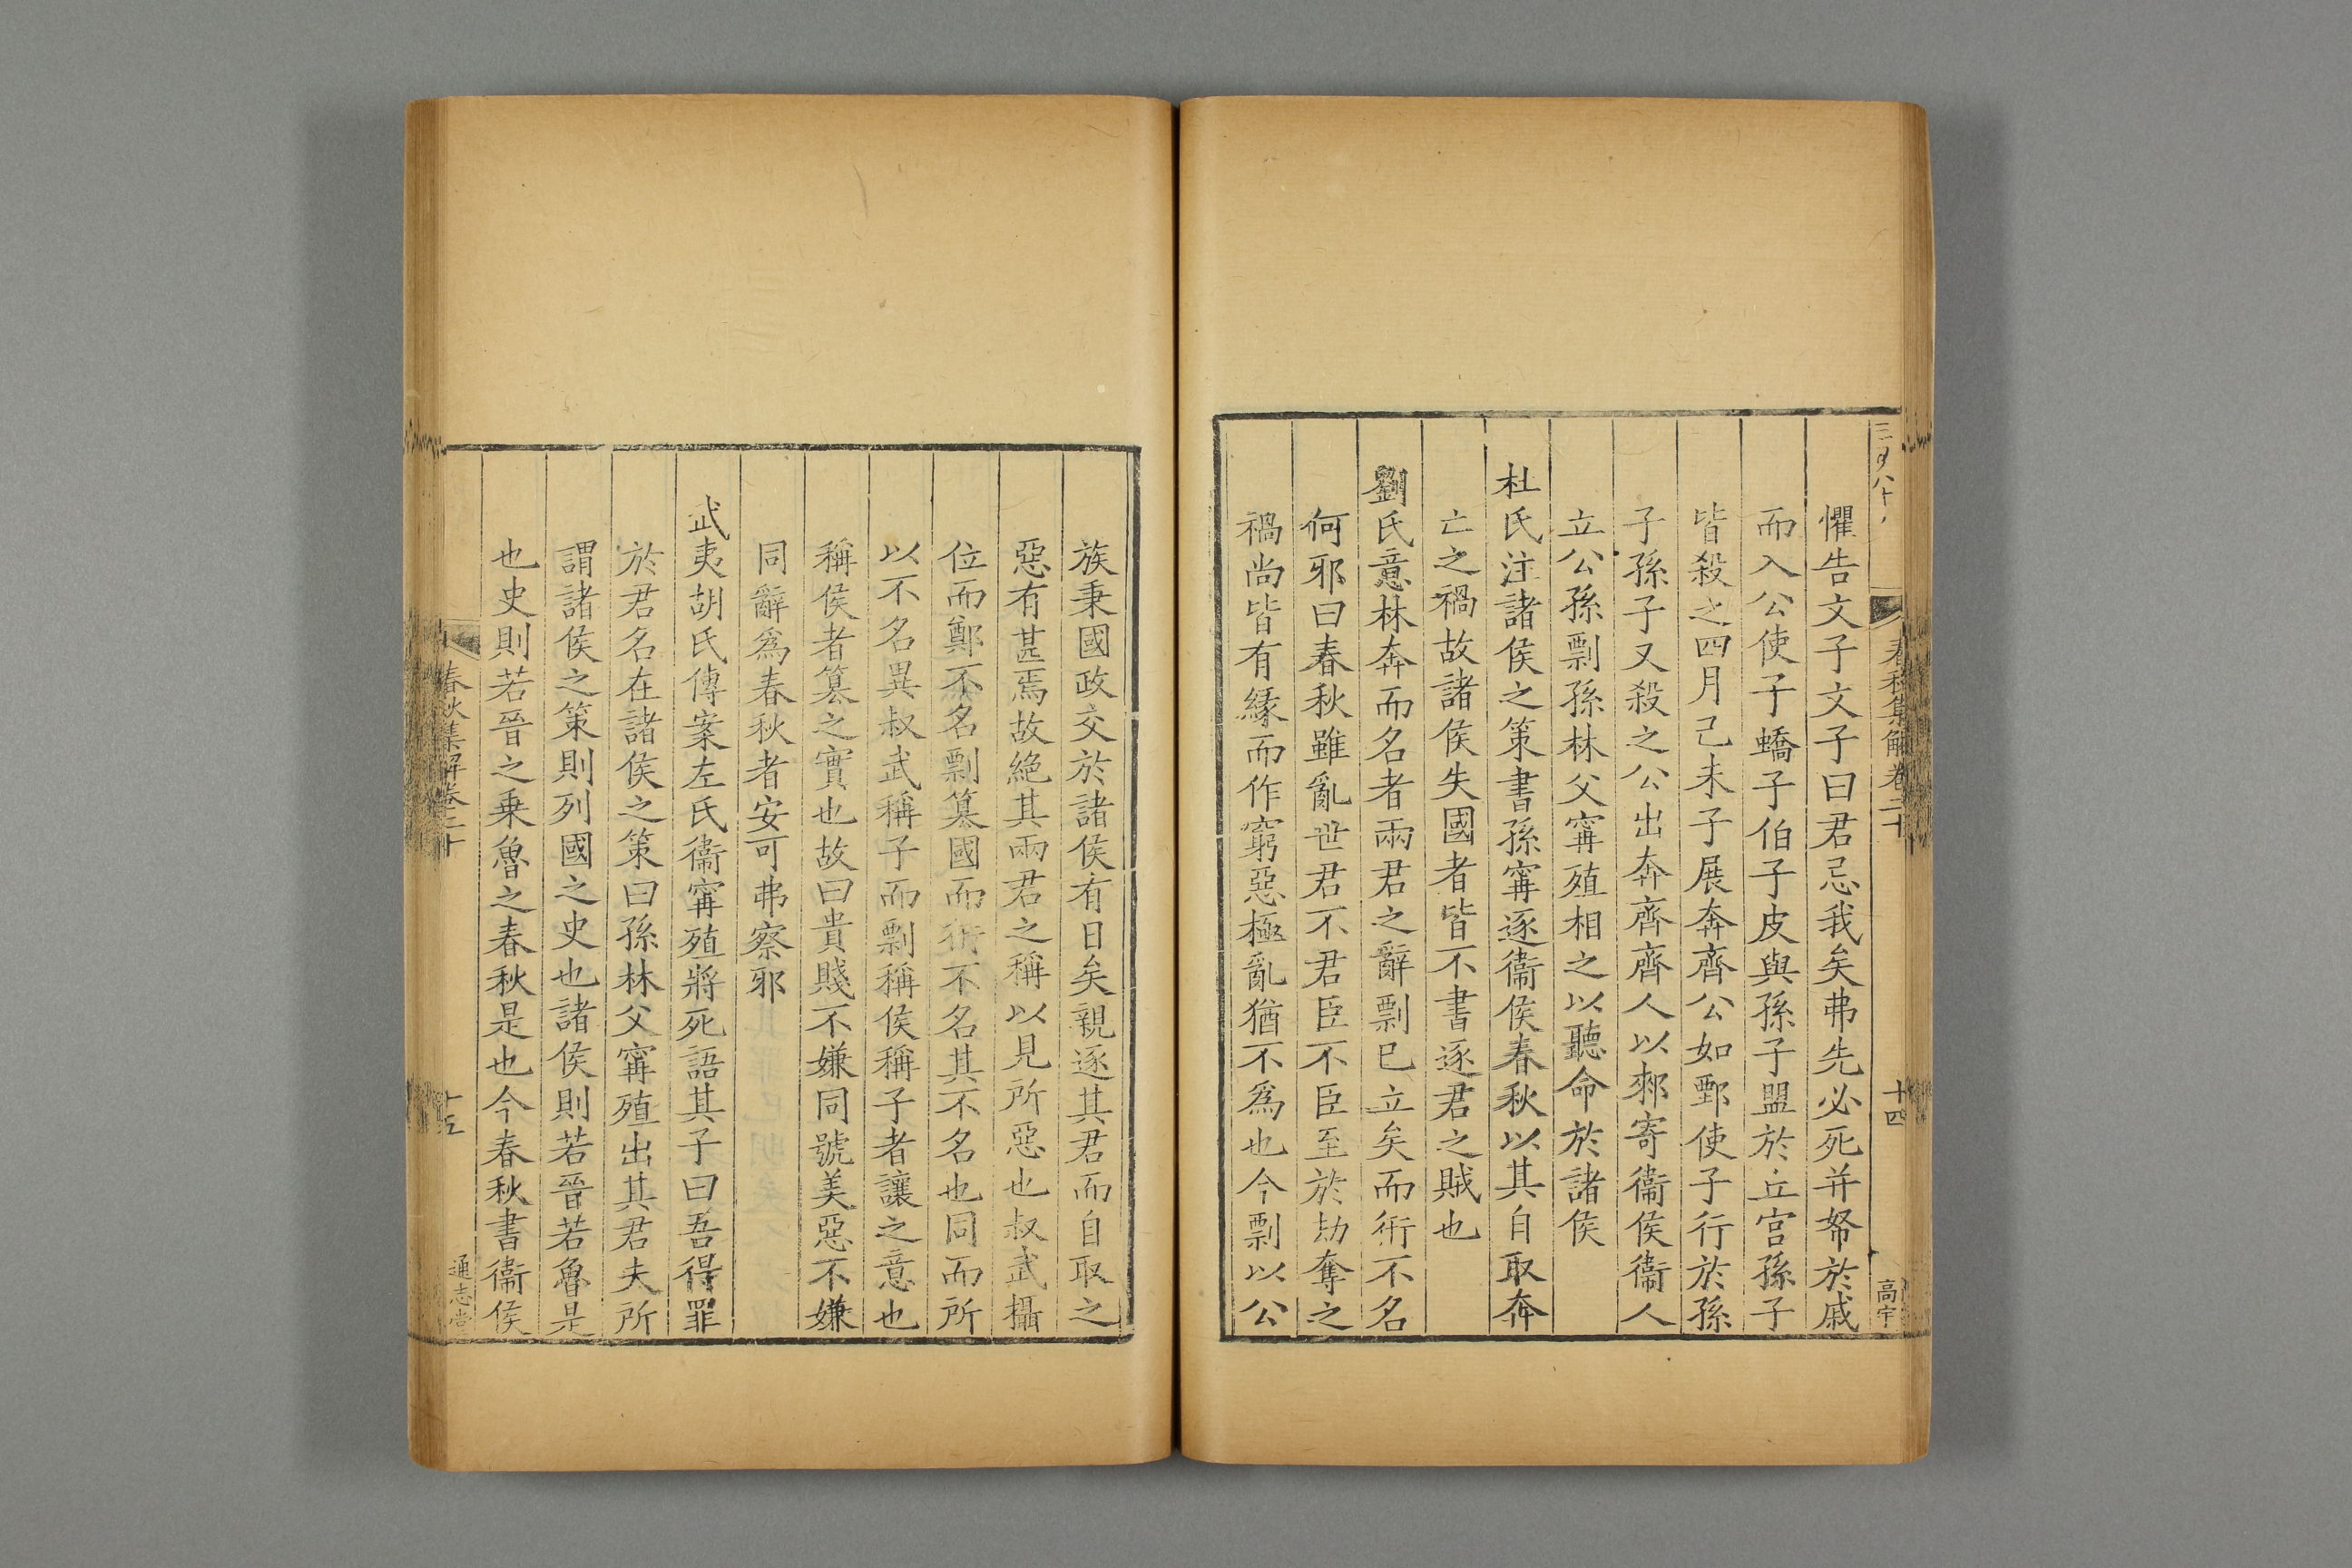 春秋集解卷二十
十四
高宇
懼告文子文子曰君忌我矣弗先必死并帑於戚
而入公使子蟜子伯子皮與孫子盟於丘宮孫子
皆殺之四月己未子展奔齊公如鄄使子行於孫
子孫子又殺之公出奔齊齊人以郲寄衞侯衞人
立公孫剽孫林父甯殖相之以聽命於諸侯
杜氏注諸侯之策書孫甯逐衞侯春秋以其自取奔
亡之禍故諸侯失國者皆不書逐君之賊也
劉氏意林奔而名者兩君之辭剽已立矣而衎不名
何邪曰春秋雖亂世君不君臣不臣至於劫奪之
禍尚皆有緣而作窮惡極亂猶不爲也今剽以公
族秉國政交於諸侯有日矣親逐其君而自取之
惡有甚焉故絶其兩君之稱以見所惡也叔武攝
位而鄭不名剽簒國而衎不名其不名也同而所
以不名異叔武稱子而剽稱侯稱子者讓之意也
稱侯者簒之實也故曰貴賤不嫌同號美惡不嫌
同辭爲春秋者安可弗察邪
武夷胡氏傳案左氏衞甯殖將死語其子曰吾得罪
於君名在諸侯之策曰孫林父甯殖出其君夫所
謂諸侯之策則列國之史也諸侯則若晉若魯是
也史則若晉之乗魯之春秋是也今春秋書衞侯
春秋集解卷二十
十五
通志堂